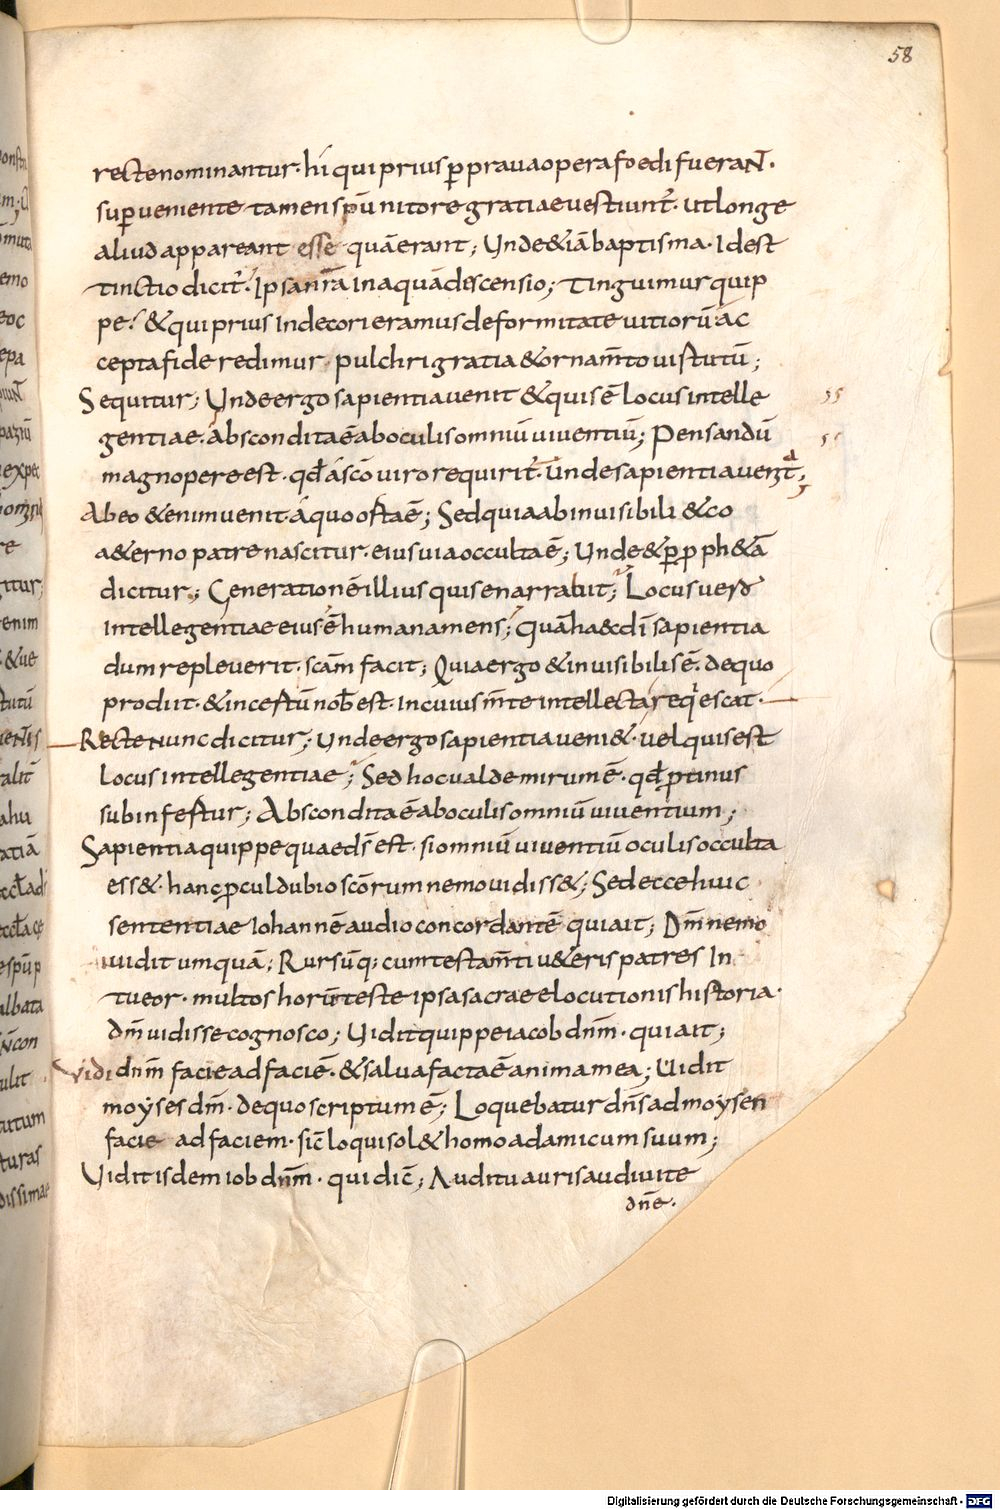 58
recte nominantur · hi qui prius ꝑ prava opera foedi fuerant ·
suꝑveniente tamen spū nitore gratiae vestiunt̄ · ut longe
aliud appareant esse quā erant ; Unde & iā baptisma · Idest
tinctio dicit̄ · Ipsa nr̄a in aquā discensio ; Tinguimur quip
pe · & qui prius Indecori eramus deformitate vitiorū · ac
cepta fide redimur · pulchri gratia & ornam̄to vistutū ;
Sequitur ; Unde ergo sapientia venit & quis ē locus intelle
gentiae · abscondita ē ab oculis omniū viventiū ; Pensandū
magnopere est · qđ a sc̄o viro requirit̄ · unde sapientia
Ab eo & enim venit · a quo ; Sed quia ab invisibili & co
a&erno patre nascitur · eius via occulta ē ; Unde & ꝑ ꝓph&ā
dicitur ; Generationē illius quis enarrabit ; Locus vero
intellegentiae eius ē humana mens ; Quā haec dī sapientia
dum repleverit · scām facit ; Quia ergo & invisibilis ē · de quo
prodiit · & incertū nob̄ est · in cuius m̄te intellecta requiescat ·
Recte nunc dicitur ; Unde ergo sapientia veni& · vel quis est
locus intellegentiae ; Sed hoc valde mirum ē · qđ ꝓtinus
subinfertur ; Abscondita ē ab oculis omniū viventium ;
Sapientia quippe quae ds̄ est · si omniū viventiū oculis occulta
ess& · hanc ꝓculdubio sc̄orum nemo vidiss& ; Sed ecce huic
sententiae Iohannē audio concordantē qui ait ; Dm̄ nemo
vidit umquā ; Rursūq; cum testam̄ti v&eris patres In
tueor · multos horū teste ipsa sacrae elocutionis historia ·
dm̄ vidisse cognosco ; Vidit quippe iacob dnm̄ · qui ait ;
Vidi dnm̄ facie ad faciē · & salva facta ē anima mea ; Vidit
moyses dm̄ · de quo scriptum ē ; Loquebatur dn̄s ad moysen
facie ad faciem · sic̄ loqui sol& homo ad amicum suum ;
Vidit isdem iob dnm̄ · qui dic̄ ; Auditu auris audivi te
dn̄e ·
Digitalisierung gefördert durch die Deutsche Forschungsgemeinschaft - DFG